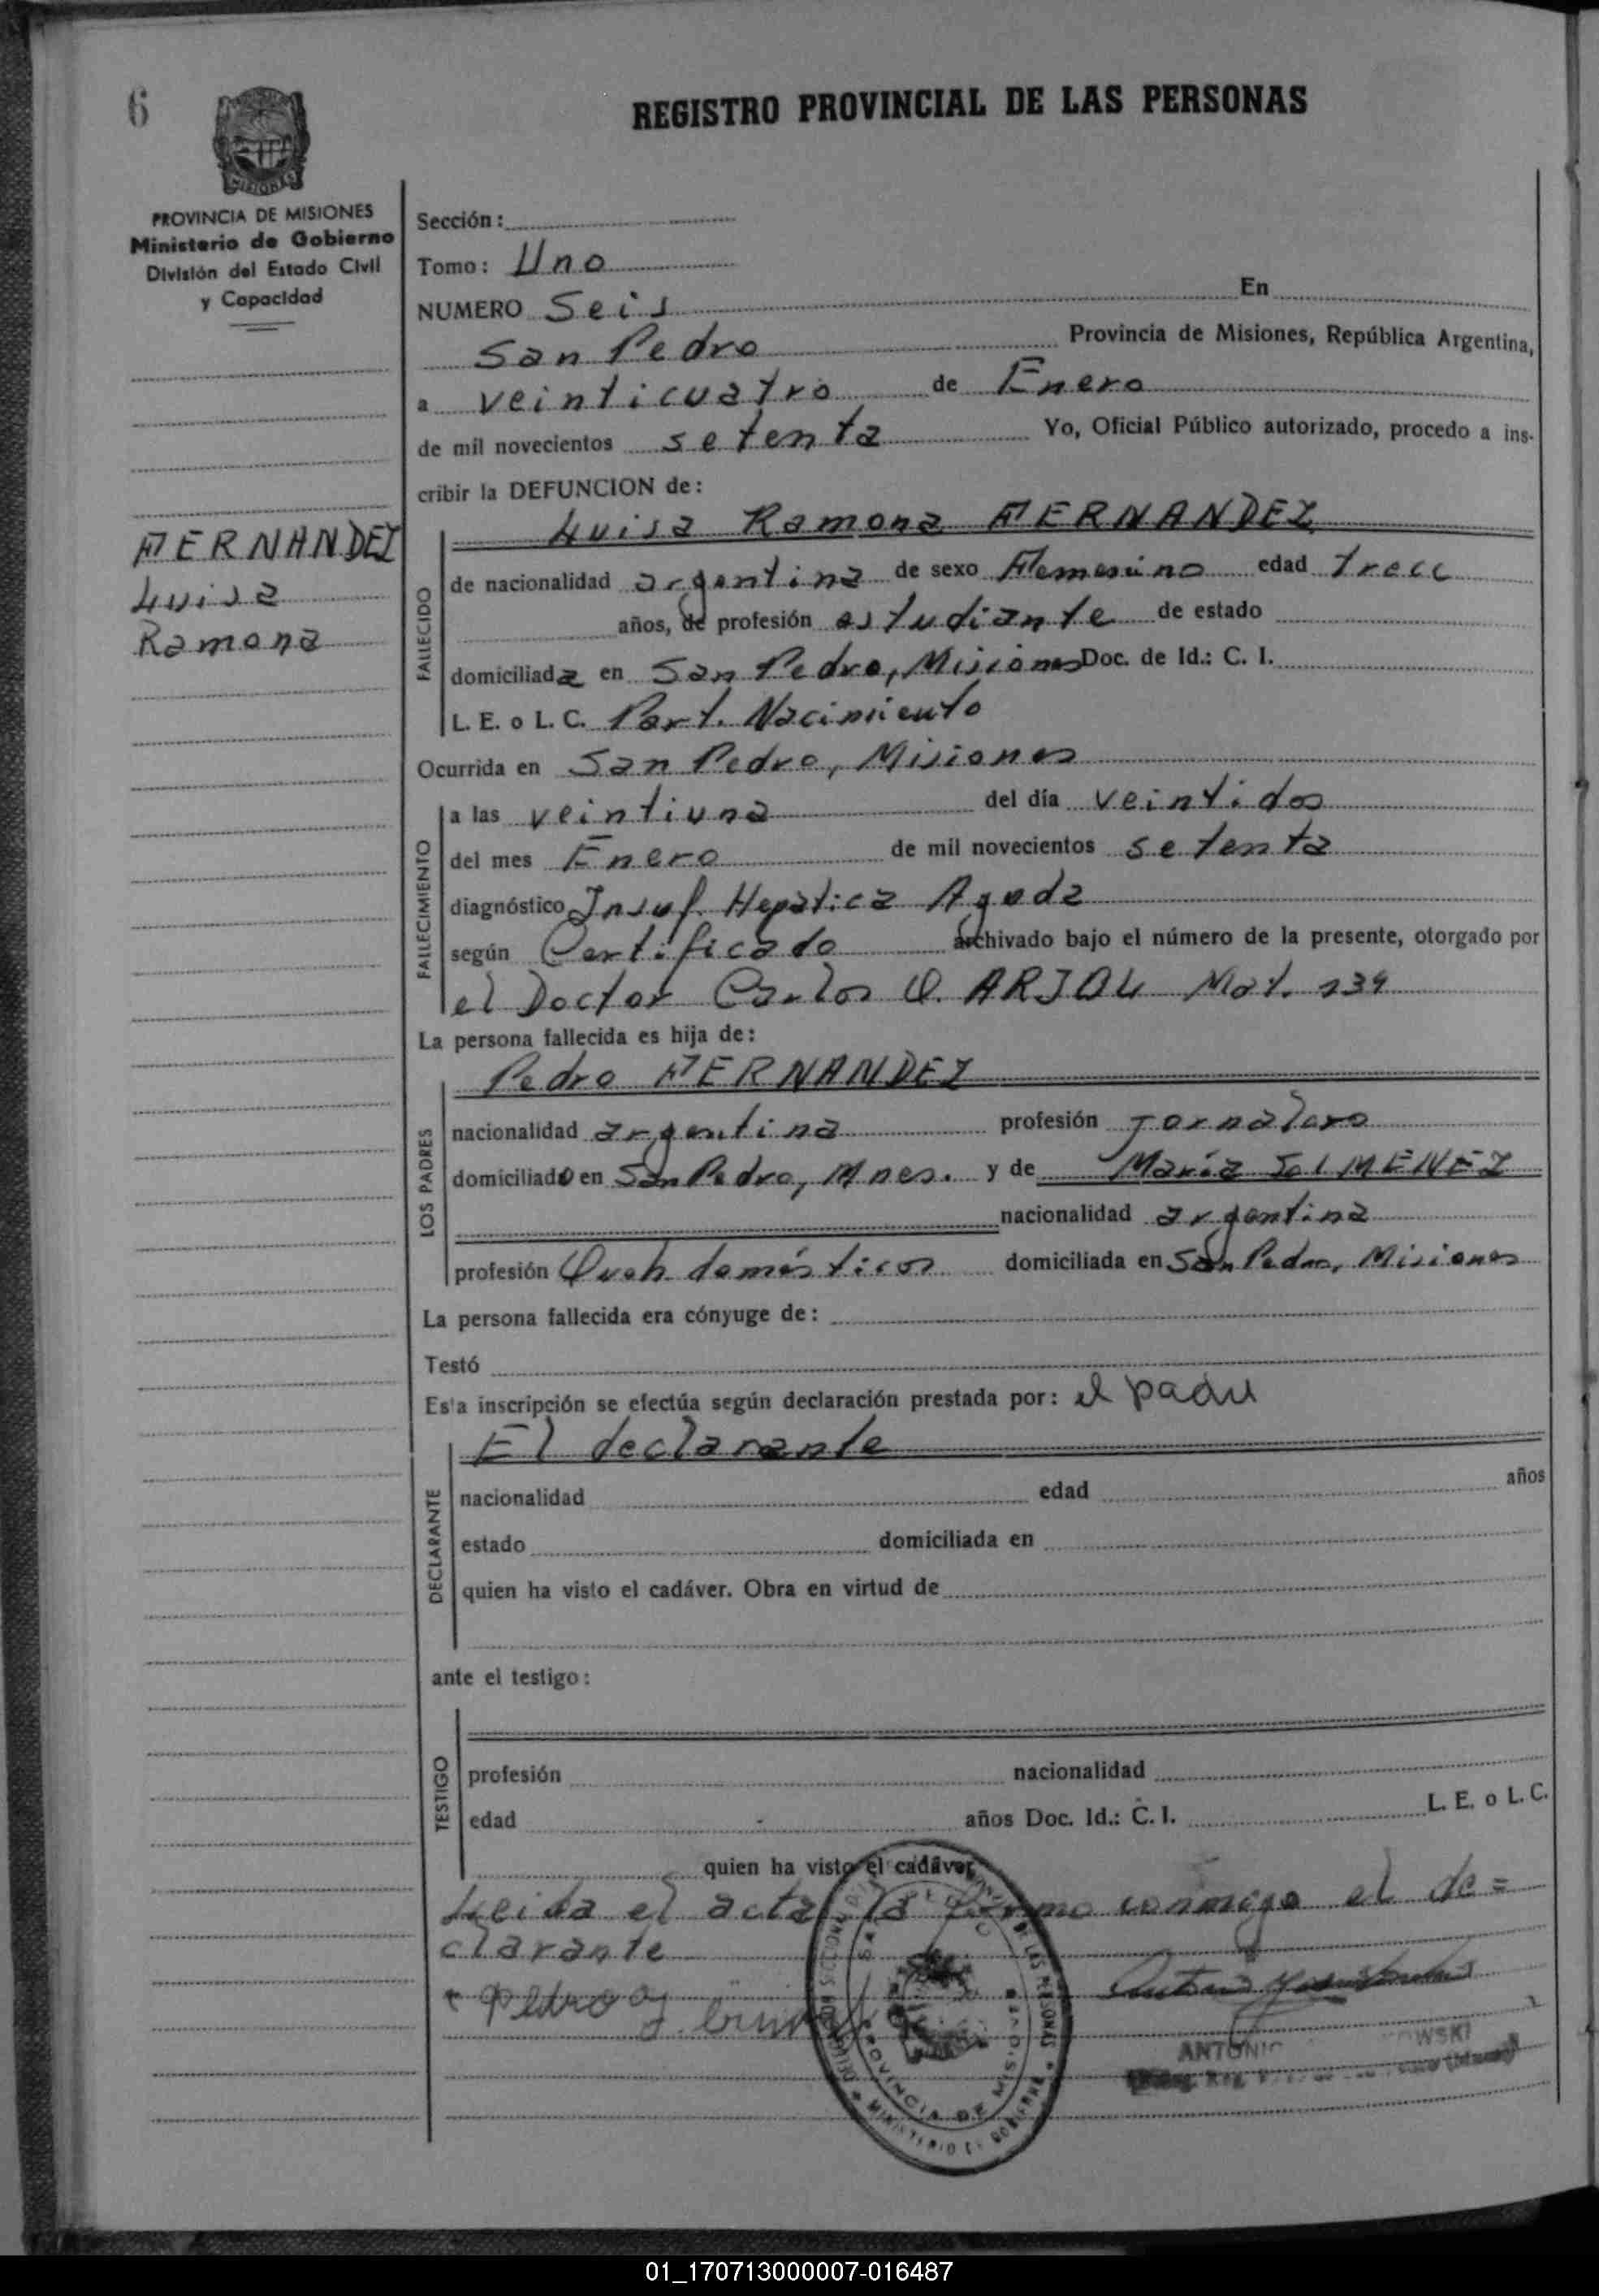 6
REGISTRO PROVINCIAL DE LAS PERSONAS
MISIONES
PROVINCIA DE MISIONES
Ministerio de Gobierno
División del Estado Civil
y Capacidad
FERNANDEZ
Luisa
Ramona
Sección:
Tomo: Uno
NUMERO Seis En
San Pedro Provincia de Misiones, República Argentina,
a veinticuatro de Enero
de mil novecientos setenta Yo, Oficial Público autorizado, procedo a ins-
cribir la DEFUNCION de:
Luisa Ramona FERNANDEZ
FALLECIDO
de nacionalidad argentina de sexo Femenino edad trece
años, de profesión estudiante de estado
domiciliada en San Pedro, Misiones Doc. de Id.: C. I.
L. E. o L. C. Part. Nacimiento
Ocurrida en San Pedro, Misiones
FALLECIMIENTO
a las veintiuna del día veintidos
del mes Enero de mil novecientos setenta
diagnóstico Insuf. Hepática Aguda
según Certificado archivado bajo el número de la presente, otorgado por
el Doctor Carlos O. ARJOL Mat. 139
La persona fallecida es hija de:
Pedro FERNANDEZ
LOS PADRES
nacionalidad argentina profesión Jornalero
domiciliado en San Pedro, Mnes. y de María JIMENEZ
nacionalidad argentina
profesión Queh. domésticos domiciliada en San Pedro, Misiones
La persona fallecida era cónyuge de:
Testó
Esta inscripción se efectúa según declaración prestada por: el padre
El declarante
DECLARANTE
nacionalidad edad años
estado domiciliada en
quien ha visto el cadáver. Obra en virtud de
ante el testigo:
TESTIGO
profesión nacionalidad
edad años Doc. Id.: C. I. L. E. o L. C.
quien ha visto el cadáver
Leida el acta la firmo conmigo el de=
clarante
Pedro
ANTONIO
PROVINCIA DE MISIONES
MINISTERIO DE GOBIERNO
01_170713000007-016487